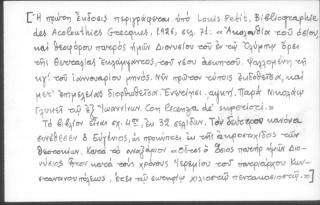 [Ἡ πρώτη ἔκδοσις περιγράφεται ὑπὸ Louis Petit, Bibliographie
des Acolouthies Grecques, 1926, σελ. 71: «Ἀκολουθία τοῦ ὁσίου
καὶ θεοφόρου πατρὸς ἡμῶν Διονυσίου τοῦ ἐν τῷ Ὀλύμπῳ ὄρει
τῆς Θετταλίας ἐκλάμψαντος τοῦ νέου ἀσκητοῦ. Ψαλλομένη τῇ
κγ΄ τοῦ ἰαννουαρίου μηνός. Νῦν πρῶτον τύποις ἐκδοθεῖσα, καὶ
μετ' ἐπιμελείας διορθωθεῖσα. Ἐνετίησι, Παρὰ Νικολάῳ
Γλυκεῖ τῷ ἐξ Ἰωαννίνων. Con licenza de' superiori.»
Τὸ βιβλίον εἶναι σχ. 4ον, ἐκ 32 σελίδων. Τὸν δεύτερον κανόνα
συνέθεσεν ὁ Εὐγένιος, ὡς προκύπτει ἐκ τῆς ἀκροστιχίδος τῶν
Θεοτοκίων. Κατὰ τὸ συναξάριον «Οὗτος ὁ ὅσιος πατὴρ ἡμῶν Διο-
νύσιος ἦτον κατὰ τοὺς χρόνους Ἱερεμίου τοῦ πατριάρχου Κων-
σταντινουπόλεως, ἔτει τῷ σωτηρίῳ χιλιοστῷ πεντακοσιοστῷ..»]